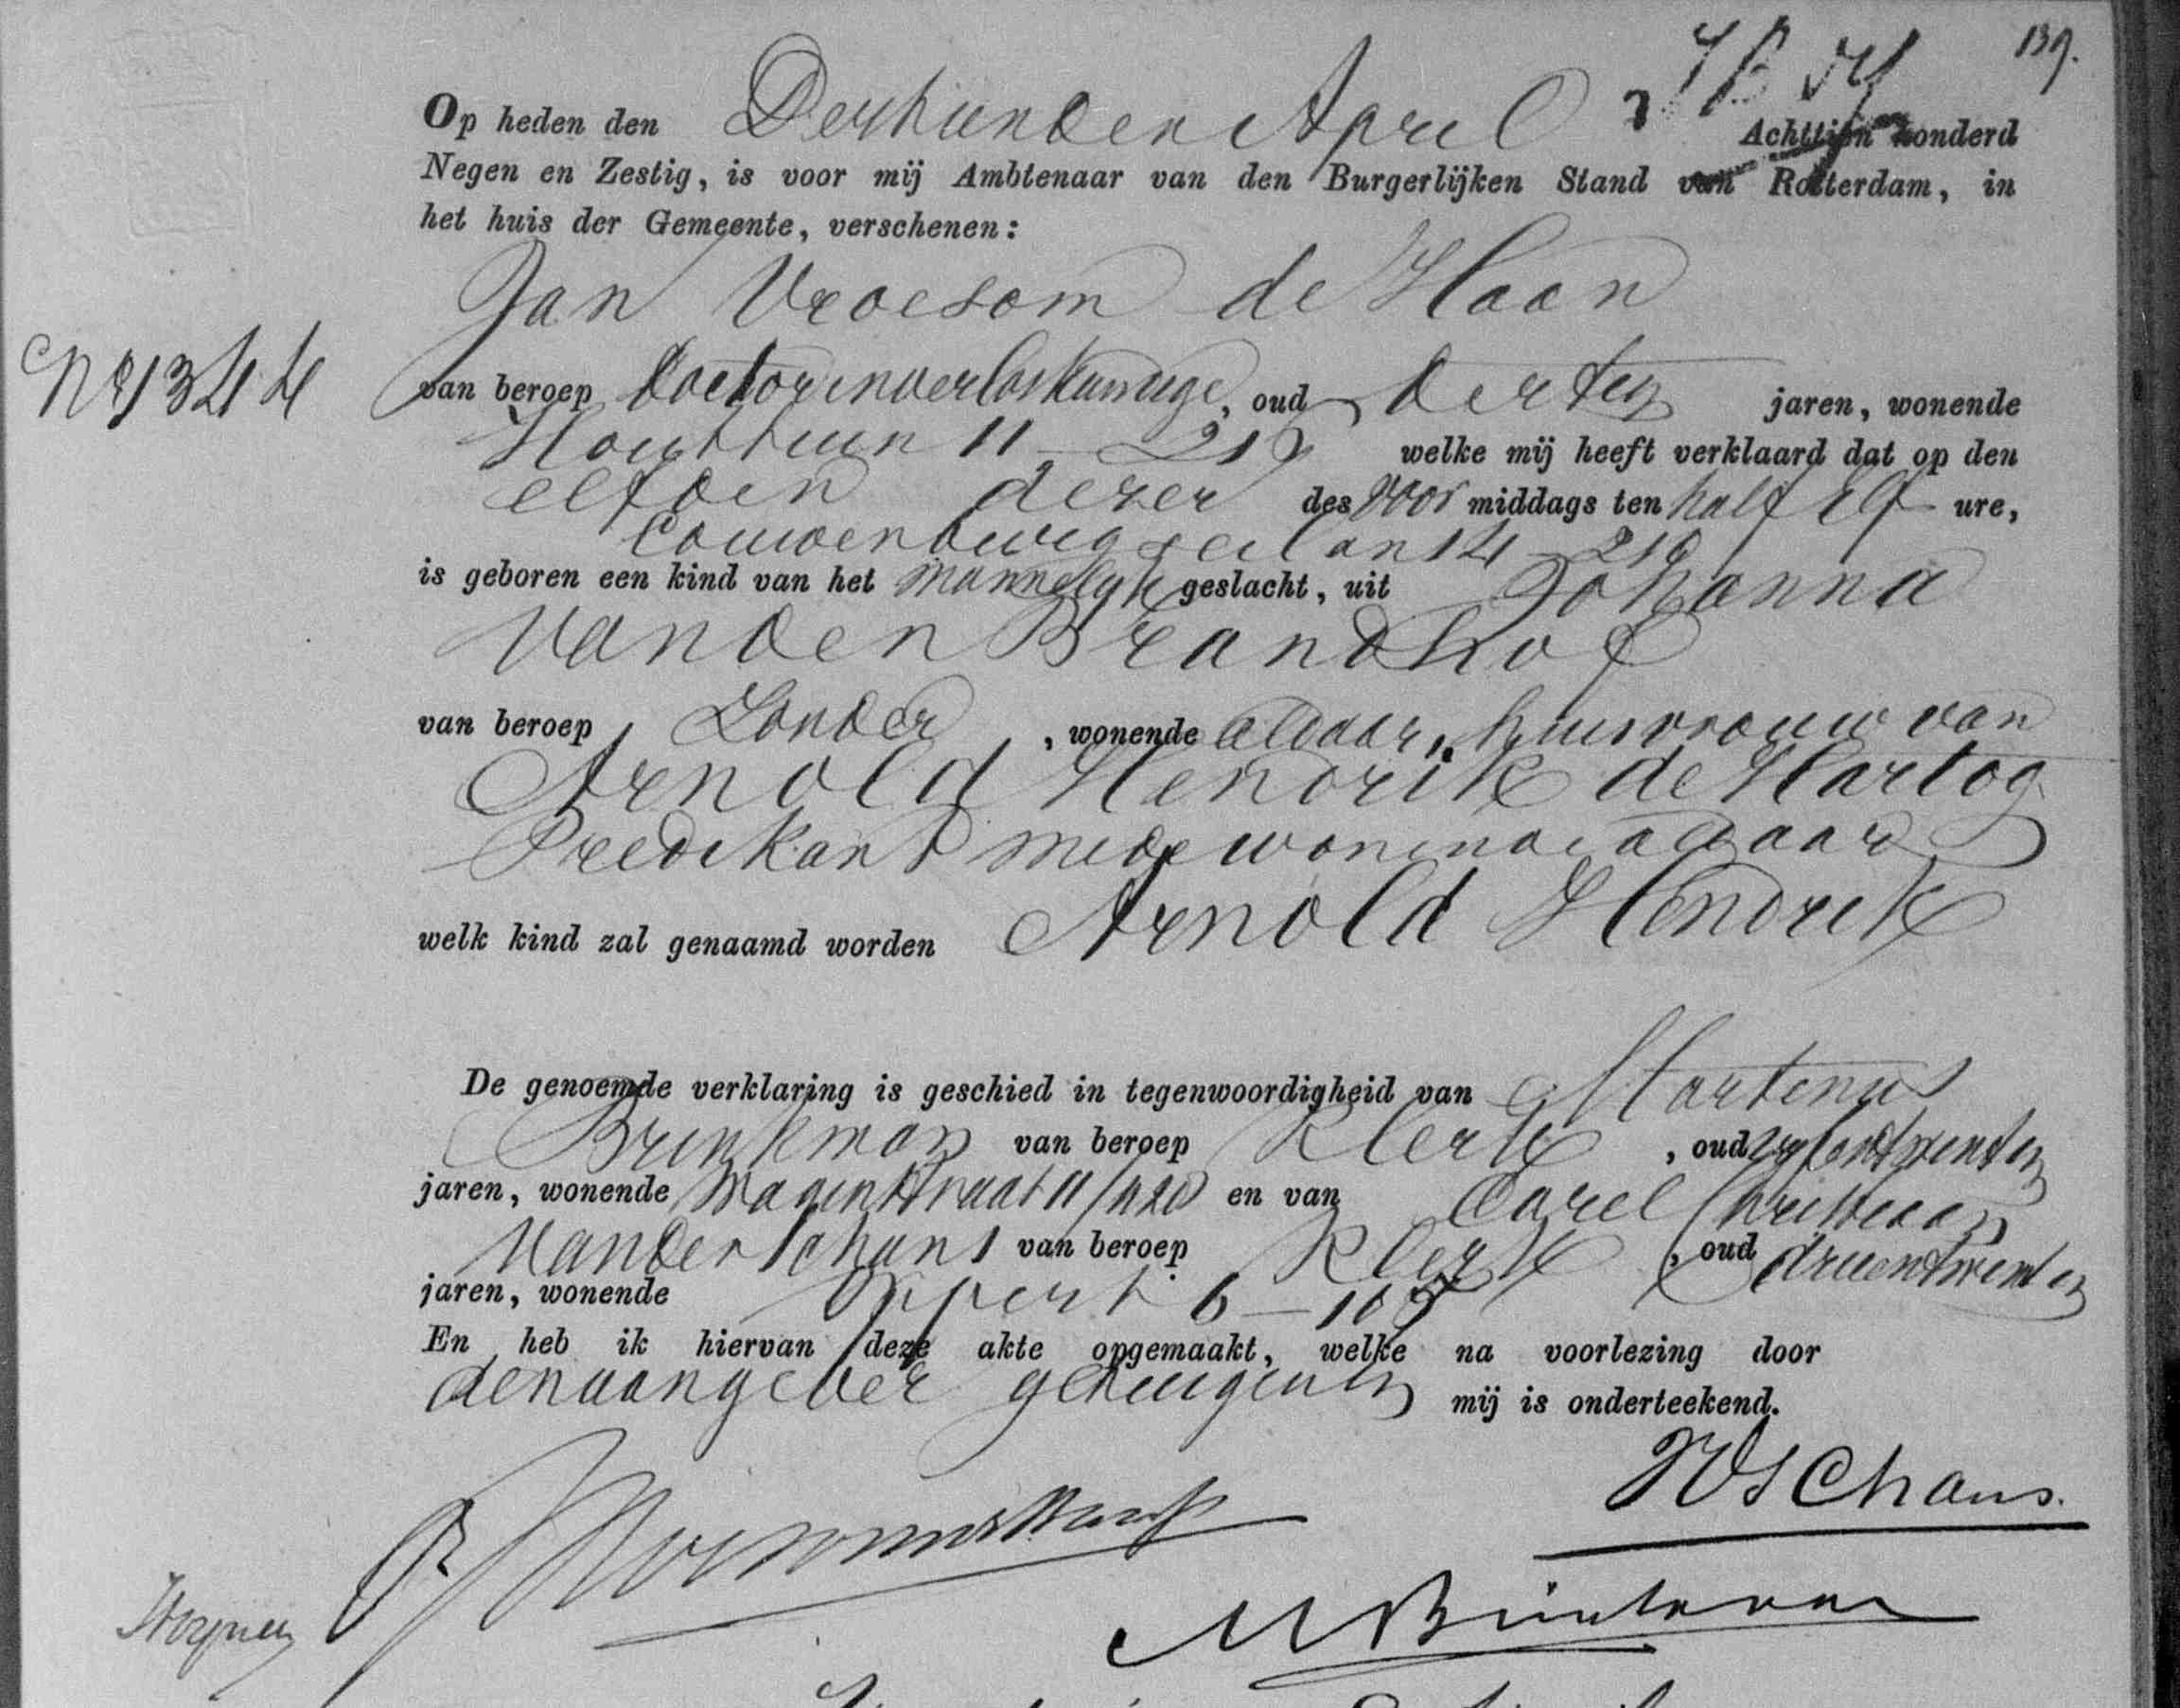 139.
Op heden den Derhienden April Achttien honderd
Negen en Zestig, is voor mij Ambtenaar van den Burgerlijken Stand van Rotterdam, in
het huis der Gemeente, verschenen:
Jan Vroesom de Haan
No 1344
van beroep Doctor in verloskunde, oud dertig jaren, wonende
Houttuin 11 - 219 welke mij heeft verklaard dat op den
elfden dezer des voor middags ten half elf ure,
Couwenburgseilan 14 - 219
is geboren een kind van het mannelijk geslacht, uit Johanna
Van den Brandhof
van beroep Zonder, wonende aldaar, huisvrouw van
Arnold Hendrik de Hartog
Predikant mede wonende aldaar
welk kind zal genaamd worden Arnold Hendrik
De genoemde verklaring is geschied in tegenwoordigheid van Martinus
Brinkman van beroep Klerk, oud
jaren, wonende 11/420 en van Carel Christiaan
Van der Schans van beroep Klerk, oud drieentwintig
jaren, wonende Oppert 6 - 167
En heb ik hiervan deze akte opgemaakt, welke na voorlezing door
den aangever getuigen en mij is onderteekend.
Schans.
M Brinkman